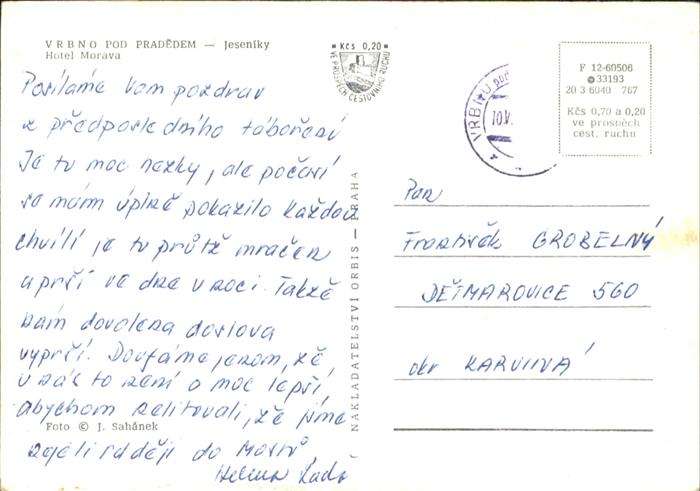 VRBNO POD PRADĚDEM — Jeseníky
Hotel Morava
* Kčs 0,20 *
VE PROSPĚCH CESTOVNÍHO RUCHU
Posíláme Vám pozdrav
z předposledního táboření
Je tu moc hezky, ale počasí
se nám úplně pokazilo každou
chvíli je tu průtž mračen
a prší ve dne v noci. Takže
nám dovolená doslova
vyprší. Doufáme jenom, že
u vás to není o moc lepší,
abychom nelitovali, že jsme
nejeli raději do
Helena
Foto © J. Sahánek
NAKLADATELSTVÍ ORBIS — PRAHA
VRBNO POD
10.V
F 12-60506
33193
20 3 6040 767
Kčs 0,70 a 0,20
ve prospěch
cest. ruchu
Pan
František GROBELNÝ
DĚTMAROVICE 560
okr KARVINÁ